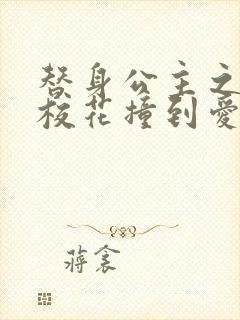 替身公主之
校花撞到爱
蒋衾